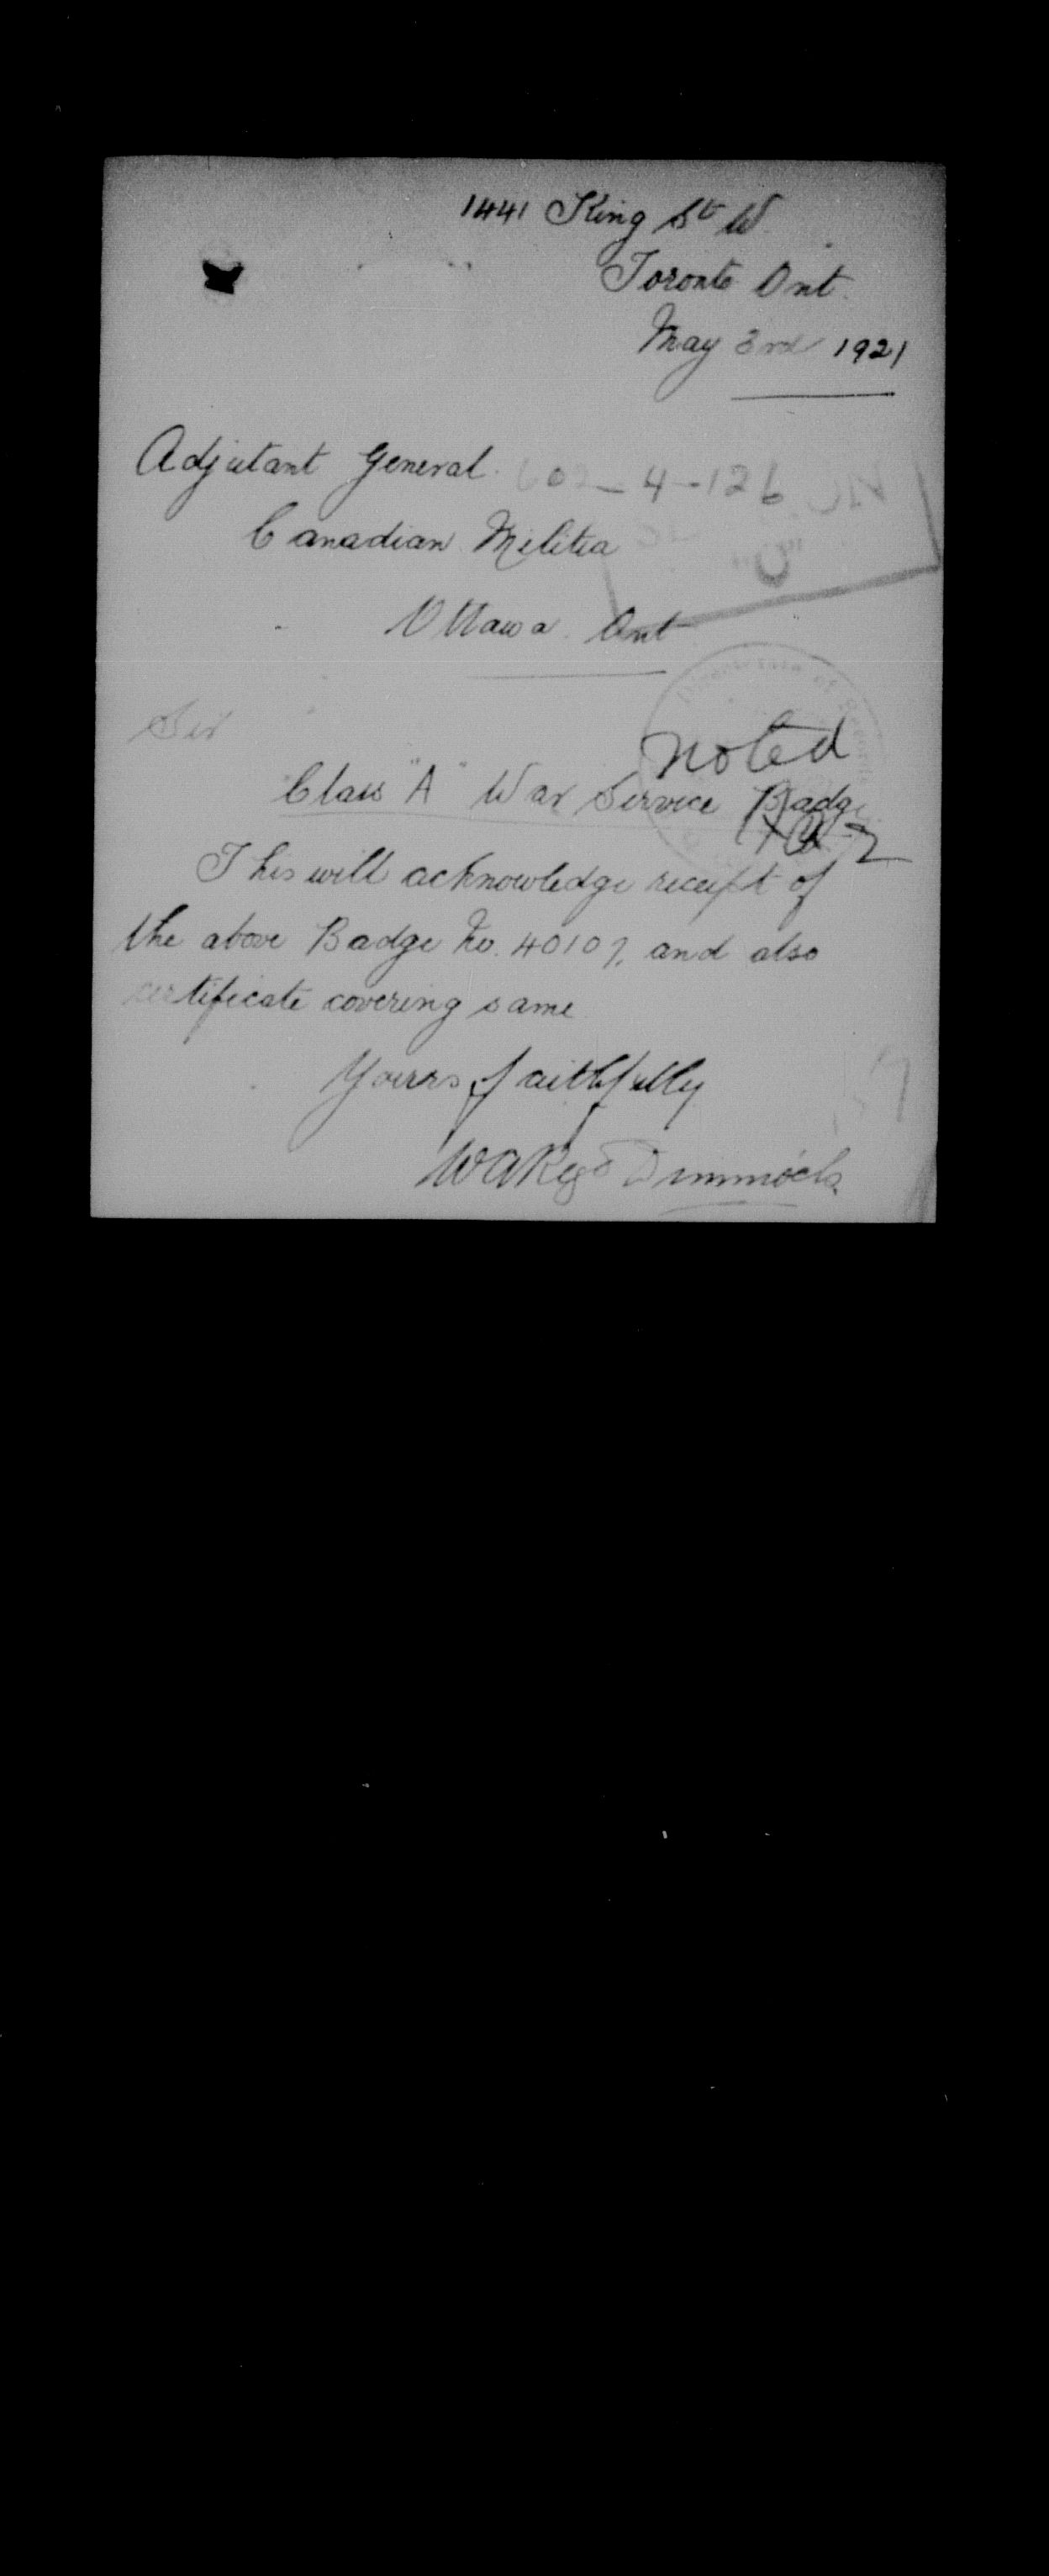 1441 King St W.
Toronto Ont.
May 3rd 1921
Adjutant General.
602-4-126
Canadian Militia
Ottawa. Ont
Sir
noted
Class "A" War Service Badge
This will acknowledge receipt of
the above Badge No. 40107, and also
certificate covering same
Yours faithfully
WA Dimmock.